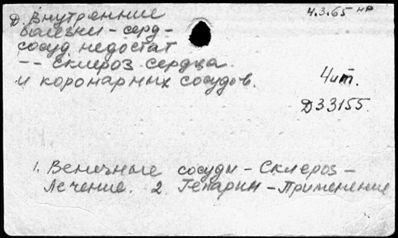 4.3.65 НР
Д. Внутренние
болезни - серд-
сосуд. недостат
-- Склероз сердца
и коронарных сосудов.
Чит.
Д33155.
1. Венечные сосуды - Склероз -
Лечение. 2. Гепарин - Применение